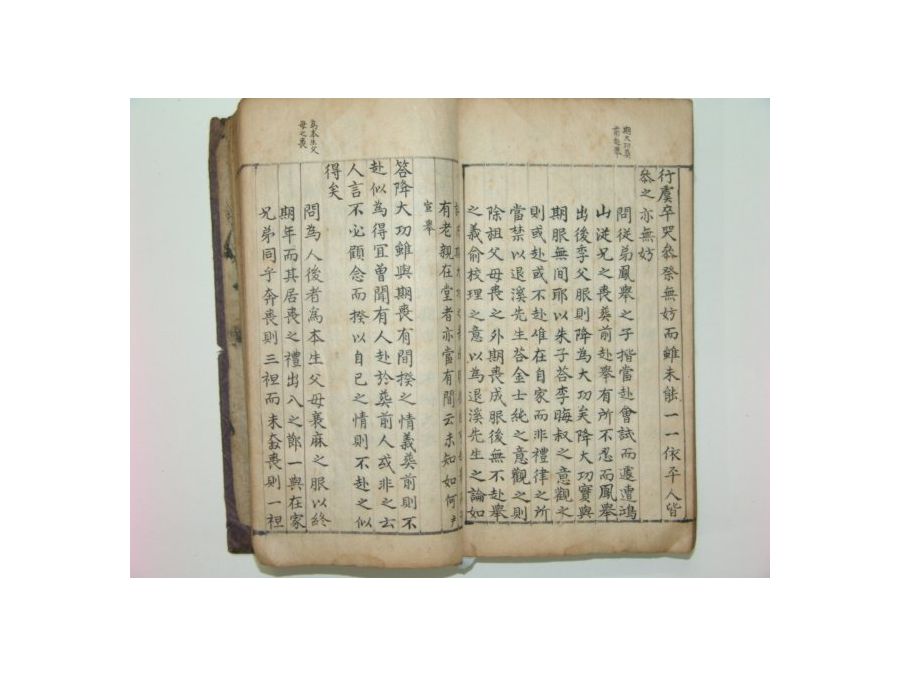 期大功葬
前赴舉
行虞卒哭叅祭無妨而雖未能一一依平人皆
叅之亦無妨
問從弟鳳舉之子揩當赴會試而遽遭鴻
山從兄之喪葬前赴舉有所不忍而鳳舉
出後季父服則降為大功矣降大功實與
期服無間耶以朱子荅李晦叔之意觀之
則或赴或不赴雖在自家而非禮律之所
當禁以退溪先生荅金士純之意觀之則
除祖父母喪之外期喪成服後無不赴舉
之義俞校理之意以為退溪先生之論如
有老親在堂者亦當有間云未知如何
宜舉
為本生父
母之喪
答降大功雖與期喪有間揆之情義葬前則不
赴似為得宜曾聞有人赴於葬前人或非之云
人言不必顧念而揆以自己之情則不赴之似
得矣
問為人後者為本生父母衰麻之服以終
期年而其居喪之禮出入之節一與在家
兄弟同乎奔喪則三袒而未奔喪則一袒